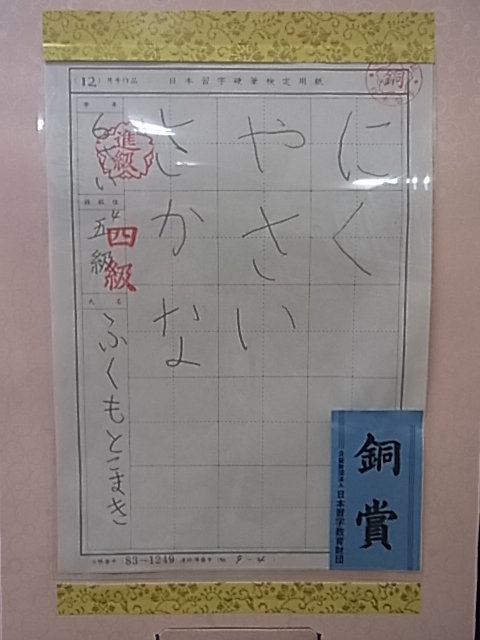 (12)月手作品 日本習字硬筆検定用紙
銅
にく
やさい
さかな
6さい
進級
五級
四級
ふくもとこまき
83-1249
9-4
銅賞
公益財団法人 日本習字教育財団